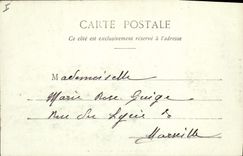 CARTE POSTALE
Ce côté est exclusivement réservé à l'adresse
Mademoiselle
Marie Rose Guige
Rue du Lycée
Marseille